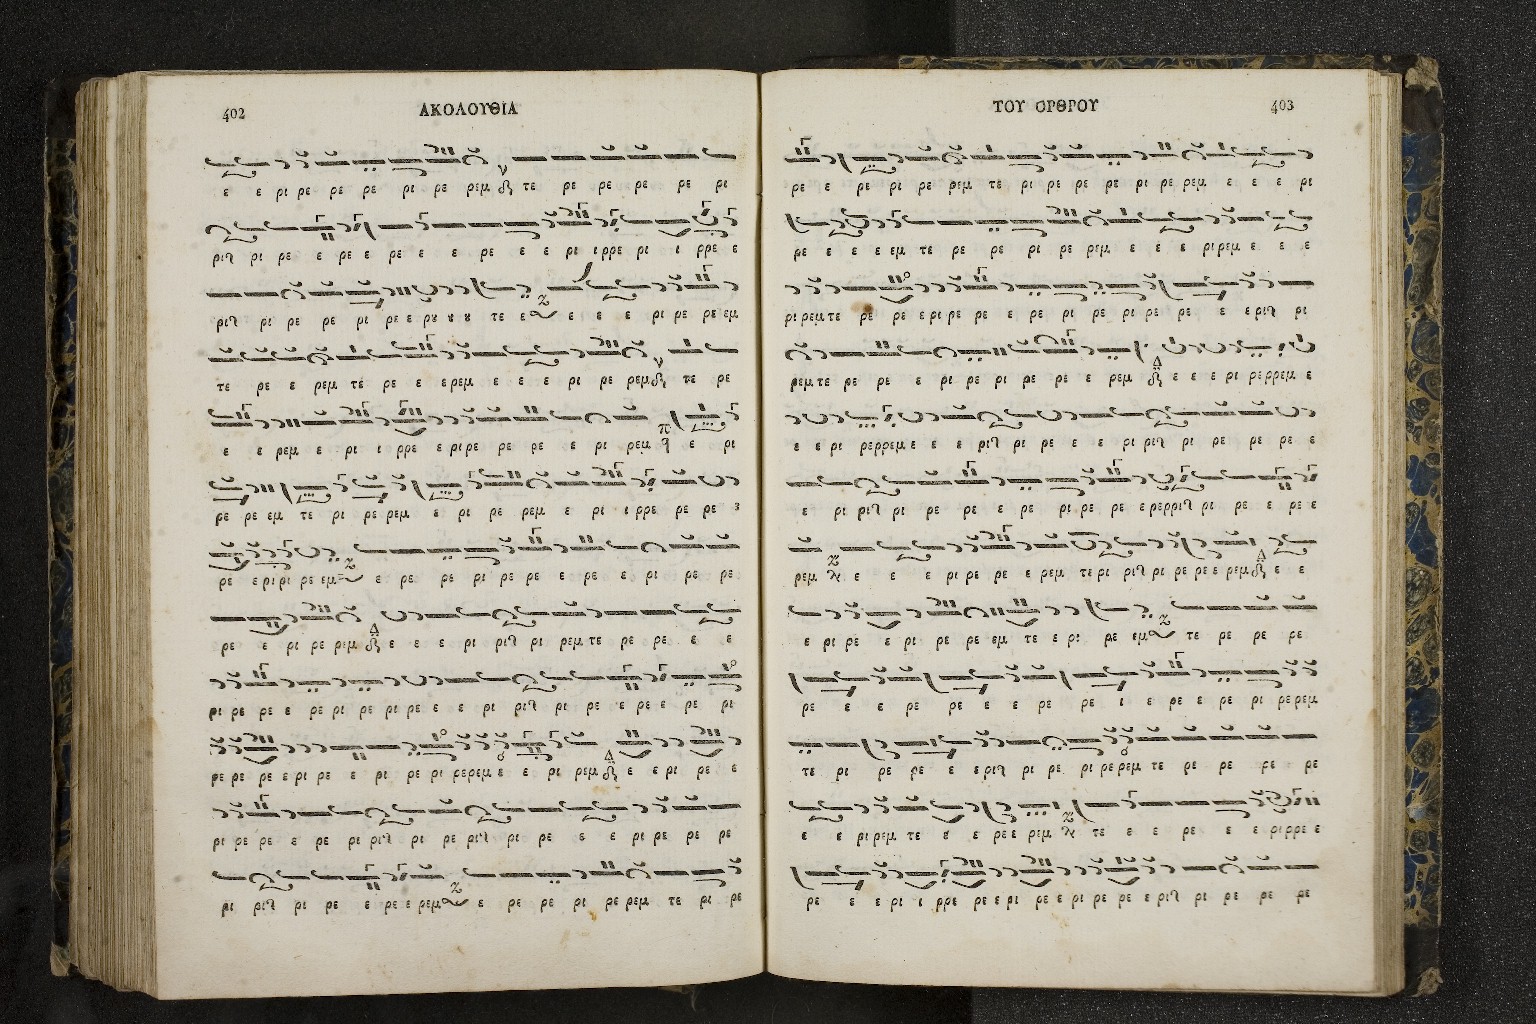 402
ΑΚΟΛΟΥΘΙΑ
ε ε ρι ρε ρε ρε ρι ρε ρεμ τε ρε ρε ρε ρε ρι
ριζ ρι ρε ε ρε ε ρε ε ε ρε ε ε ρι ι ρρε ρι ι ρρε ε
ριζ ρι ρε ρε ρι ρε ε ρȣ ȣ ȣ τε ε ε ε ε ρι ρε ρε εμ
τε ρε ε ρεμ τε ρε ε ε ρεμ ε ε ε ρι ρε ρεμ τε ρε
ε ε ρεμ ε ρι ι ρρε ε ρι ρε ρε ρε ε ρι ρεμ ε ρι
ρε ρε εμ τε ρι ρε ρεμ ε ρι ρε ρεμ ε ρι ι ρρε ρε ρε
ρε ε ρι ρι ρε εμ ε ρε ρε ρι ρε ρε ε ρε ε ρι ρε ρε
ρε ε ρι ρε ρεμ ε ε ε ρι ριζ ρι ρεμ τε ρε ρε ε ε
ρι ρε ρε ε ρε ρι ρε ρι ρε ε ε ρι ριζ ρι ρε ε ρε ε ρε ρι
ρε ρε ρε ε ρι ρε ε ρι ρε ρι ρε ρεμ ε ε ρι ρεμ ε ε ρι ρε ε
ρι ρε ρε ε ρε ρι ριζ ρι ρε ριζ ρι ρε ε ε ρι ρε ρε ρε
ρι ριζ ρι ρε ε ρε ε ρεμ ε ρε ρε ρι ρε ρεμ τε ρι ρε
ΤΟΥ ΟΡΘΡΟΥ
403
ρε ε ρε ρι ρε ρεμ τε ρι ρε ρε ρε ρι ρε ρεμ ε ε ε ρι
ρε ε ε ε εμ τε ρε ρε ρι ρε ρεμ ε ε ε ρι ρεμ ε ε ε
ρι ρεμ τε ρε ρε ε ρι ρε ρε ε ρε ρι ρε ρι ρε ρε ε ε ριζ ρι
ρεμ τε ρε ρε ε ρι ρε ρι ρε ρε ε ρεμ ε ε ε ρι ρε ρρεμ ε
ε ε ρι ρε ρρεμ ε ε ε ριζ ρι ρε ε ε ρι ριζ ρι ρε ρε ρε ε
ε ρι ριζ ρι ρε ρε ε ρε ρι ρε ρε ε ρε ρριζ ρι ρε ε ρε ε
ρεμ ε ε ε ρι ρε ρε ε ρεμ τε ρι ριζ ρι ρε ρε ε ρεμ ε ε
ε ρι ρε ε ρι ρε ρε εμ τε ε ρι ρε εμ τε ρε ρε ρε
ρε ε ε ρε ρε ε ε ρε ρε ι ε ρε ε ρε ρι ρε ρεμ
τε ρι ρε ρε ε ε ριζ ρι ρε ρι ρε ρεμ τε ρε ρε ρε ρε
ε ε ρι ρεμ τε ȣ ε ρε ε ρεμ τε ε ε ρε ε ε ρι ρρε ε
ρε ε ε ρι ι ρρε ρε ε ρι ρε ε ρι ρε ρε ε ριζ ρι ρε ρε ρε